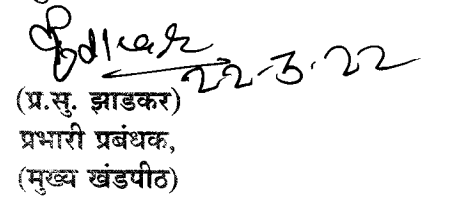 22-3-22
(प्र.सु. झाडकर)
प्रभारी प्रबंधक,
(मुख्य खंडपीठ)